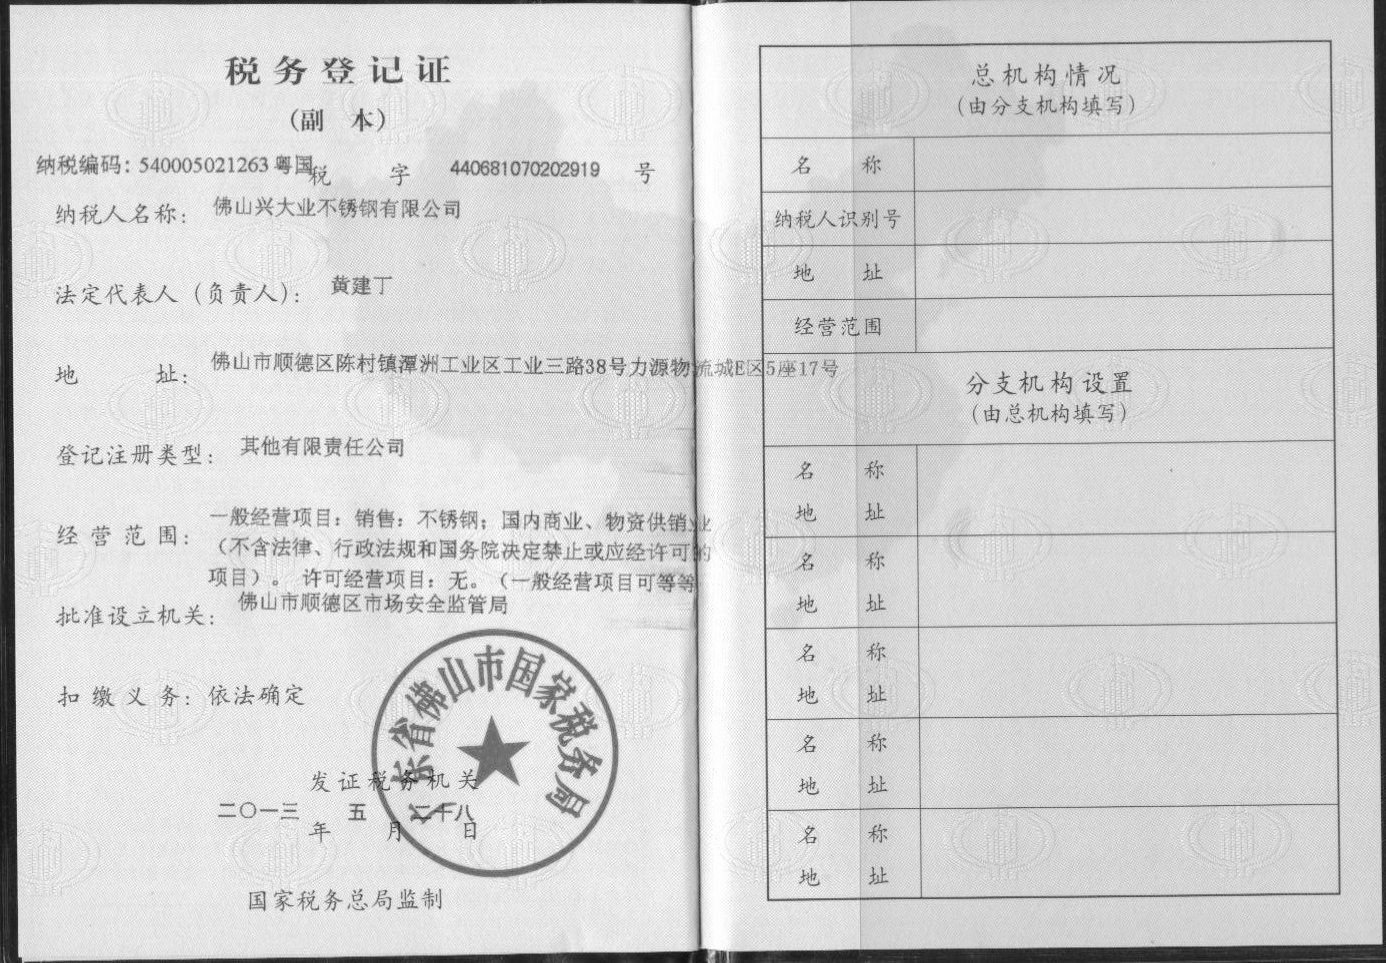 税务登记证
(副 本)
纳税编码: 540005021263 粤国税 字 440681070202919 号
纳税人名称: 佛山兴大业不锈钢有限公司
法定代表人（负责人）: 黄建丁
地 址: 佛山市顺德区陈村镇潭洲工业区工业三路38号力源物流城E区5座17号
登记注册类型: 其他有限责任公司
经营范围: 一般经营项目: 销售: 不锈钢; 国内商业、物资供销业
（不含法律、行政法规和国务院决定禁止或应经许可的
项目）。 许可经营项目: 无。（一般经营项目可等等
批准设立机关: 佛山市顺德区市场安全监管局
扣缴义务: 依法确定
广东省佛山市国家税务局
发证税务机关
二〇一三 年 五 月 二十八 日
国家税务总局监制
总机构情况
(由分支机构填写)
名 称
纳税人识别号
地 址
经营范围
分支机构设置
(由总机构填写)
名 称
地 址
名 称
地 址
名 称
地 址
名 称
地 址
名 称
地 址